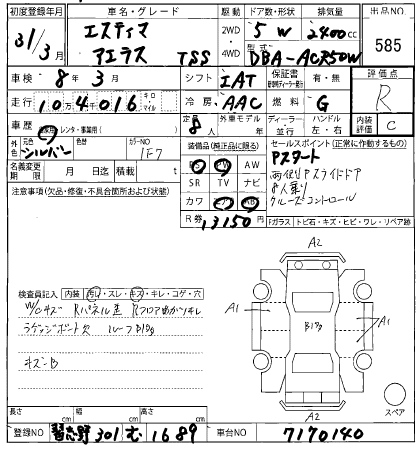 初度登録年月 車名・グレード 駆動 ドア数・形状 排気量 出品NO
31/3月 エスティマ 2WD 5W 2400cc 585
アエラス TSS 4WD 型式 DBA-ACR50W
車検 8年3月 シフト IAT 保証書 有・無 評価点
走行 104016 キロ マイル 冷房 AAC 燃料 G R
車歴 自家用・レンタ・事業用( ) 定員 8人 外車モデル 年 ディーラー 並行 ハンドル 左・右 内装評価 C
外色 元色 シルバー 色替 カラーNO 1F7 装備品(純正品に限る) セールスポイント(正常に作動するもの)
PS PW AW Pスタート
名義変更期限 月 日迄 積載 t SR TV ナビ 両側Pスライドドア
注意事項(欠品・修復・不具合箇所および状態) カワ エアB 8人乗り
クルーズコントロール
R券 13150円 Fガラス トビ石・キズ・ヒビ・ワレ・リペア跡
A2
検査員記入 内装 汚れ・スレ・キズ・キレ・コゲ・穴
W/Cキズ Rパネル歪 Rフロア曲がりキレ A1 B19 A1
ラゲッジボード欠 ルーフB19
キズ・B
A2 スペア
長さ cm 幅 cm 高さ cm
登録NO 習志野 301 む 1689 車台NO 7170140